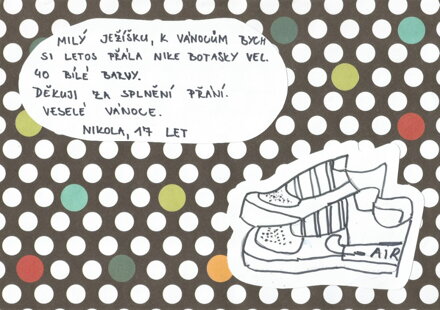 MILÝ JEŽÍŠKU, K VÁNOCŮM BYCH
SI LETOS PŘÁLA NIKE BOTASKY VEL.
40 BÍLÉ BARVY.
DĚKUJI ZA SPLNĚNÍ PŘÁNÍ.
VESELÉ VÁNOCE.
NIKOLA, 17 LET
AIR